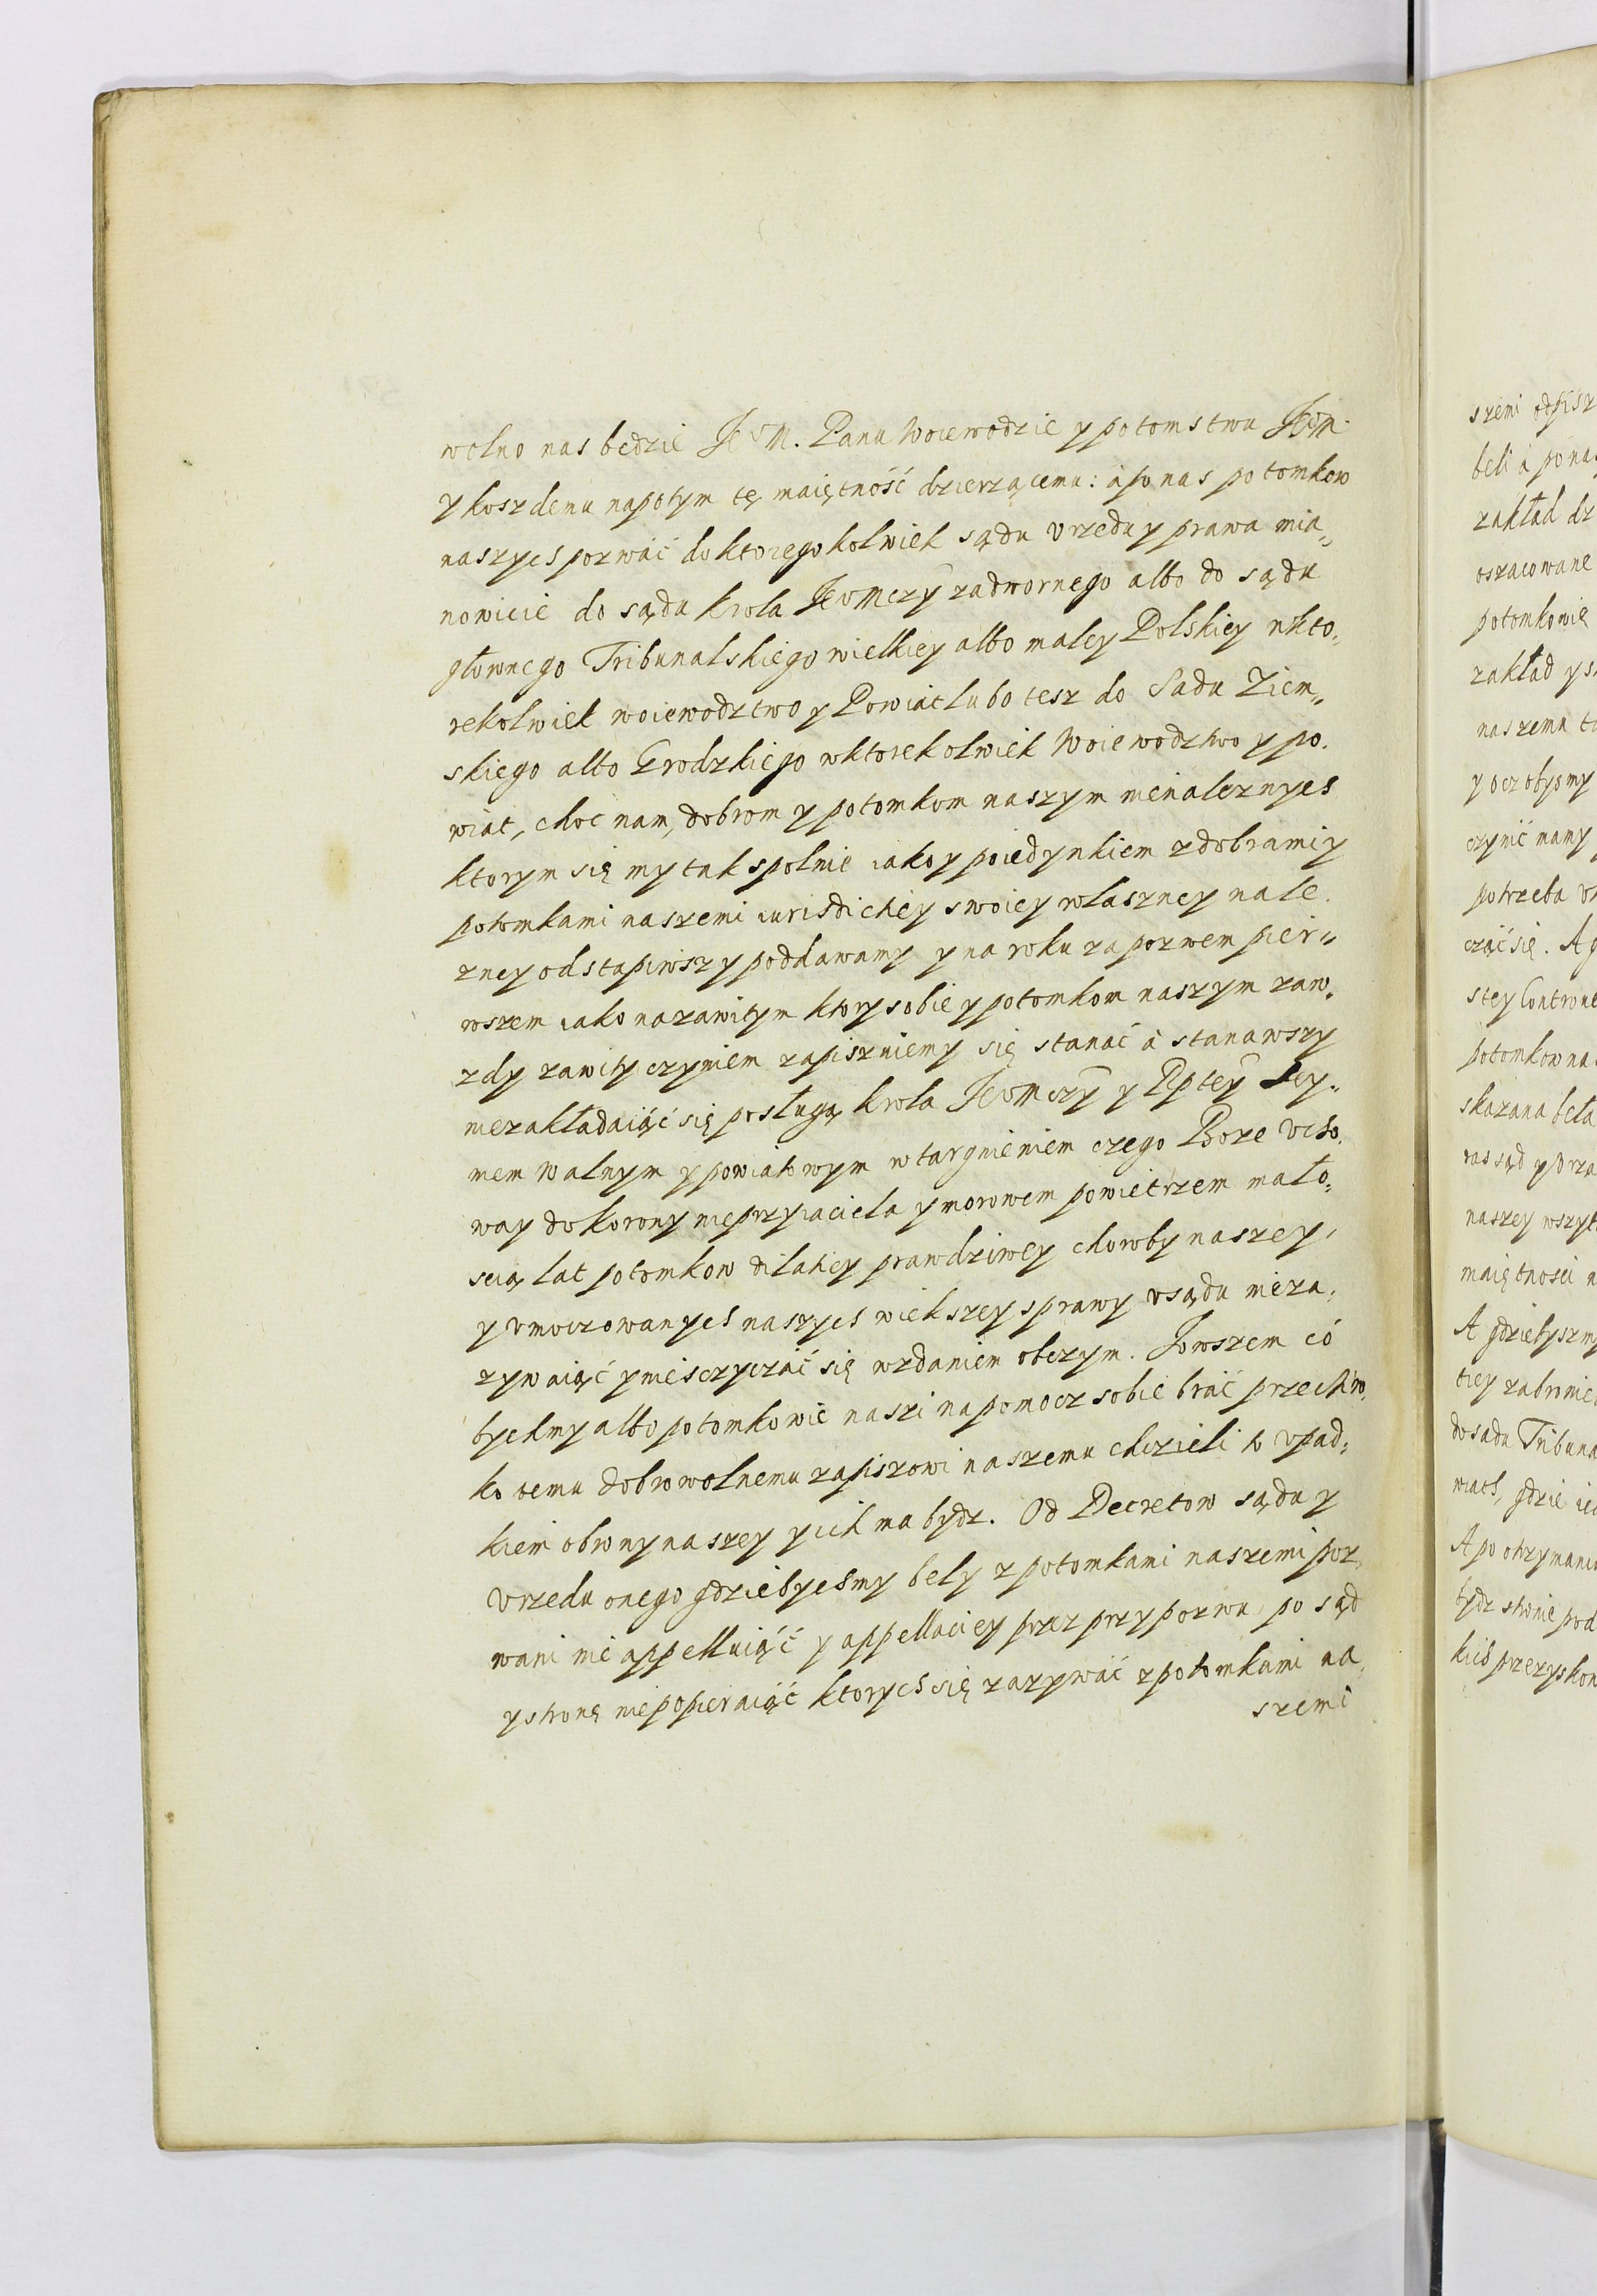 wolno nas będzie JeoM. Panu Woiewodzie y potomstwu JeoM.
y koszdemu napotym tę maiętność dzierzącemu: à po nas potomkow
naszych pozwać do ktoregokolwiek sądu vrzedu y prawa mia„
nowicie do sądu Krola JeoMczy zadwornego albo do sądu
głownego Tribunalskiego wielkiey albo maley Polskiey wkto„
rekolwiek woiewodztwo y Powiat lubo tesz do Sadu Ziem„
skiego albo Grodzkiego wktorekolwiek Woiewodztwo y po„
wiat, choc nam, dobrom y potomkom naszym nienaleznych
ktorym się my tak spolnie iako y poiedynkiem zdobrami y
potomkami naszemi iurisdictiey swoiey własznej nale„
zney odstapiwszy poddawamy y na roku za pozwem pier„
wszem iako na zawitym ktory sobie y potomkom naszym zaw„
zdy zawity czyniem zapiszuiemy się stanać à stanawszy
niezakładaiąć się posługą Krola JeoMczy y Rptey Sey„
mem Walnym y powiatowym wtargnieniem czego Boze vcho„
way do Korony nieprzyiaciela y morowem powietrzem mało„
scią lat potomkow dilatiey prawdziwey chowby naszey,
y vmoczowanych naszych wiekszey sprawy vsądu nieza„
zywaiąć y nieszczyczać się wzdaniem obczym. Jowszem có
bychmy albo potomkowie naszi napomocz sobie brać przeciw„
ko temu dobrowolnemu zapiszowi naszemu chczieli to vpad„
kiem obrony naszey y ich ma bydz. Od Decretow sądu y
Vrzedu onego gdziebychmy bely z potomkami naszemi poz„
wani nie appelluiąć y appellaciey przez przypozwu po sąd
y stronę niepopieraiąć ktorych się zazywać z potomkami na„
szemi
szemi
beli à
zakład
oszacowane
potomkowie
zakład
naszemu
czynić mamy
potrzeba
cząć się. A
stey
skazana beła
naszey
maiętności
A gdziebyszmy
tiey
do sadu
gdzie
A po otrzymaniu
bydz